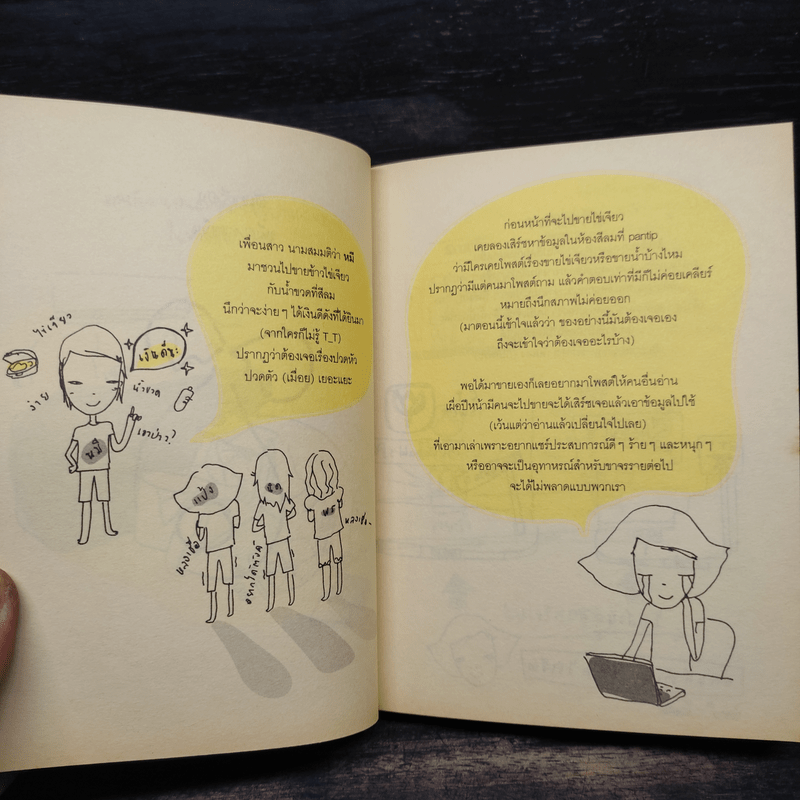 เพื่อนสาว นามสมมติว่า หมี
มาชวนไปขายข้าวไข่เจียว
กับน้ำขวดที่สีลม
นึกว่าจะง่ายๆ ได้เงินดีดังที่ได้ยินมา
(จากใครก็ไม่รู้ T_T)
ปรากฏว่าต้องเจอเรื่องปวดหัว
ปวดตัว (เมื่อย) เยอะแยะ
ไข่เจียว
เงินดีนะ
ง่าย
น้ำขวด
เอาป่าว?
หมี
แป้ง
หลงเชื่อ
ก่อนหน้าที่จะไปขายไข่เจียว
เคยลองเสิร์ชหาข้อมูลในห้องสีลมที่ pantip
ว่ามีใครเคยโพสต์เรื่องขายไข่เจียวหรือขายน้ำบ้างไหม
ปรากฏว่ามีแต่คนมาโพสต์ถาม แล้วคำตอบเท่าที่มีก็ไม่ค่อยเคลียร์
หมายถึงนึกสภาพไม่ค่อยออก
(มาตอนนี้เข้าใจแล้วว่า ของอย่างนี้มันต้องเจอเอง
ถึงจะเข้าใจว่าต้องเจออะไรบ้าง)
พอได้มาขายเองก็เลยอยากมาโพสต์ให้คนอื่นอ่าน
เผื่อปีหน้ามีคนจะไปขายจะได้เสิร์ชเจอแล้วเอาข้อมูลไปใช้
(เว้นแต่ว่าอ่านแล้วเปลี่ยนใจไปเลย)
ที่เอามาเล่าเพราะอยากแชร์ประสบการณ์ดีๆ ร้ายๆ และหนุกๆ
หรืออาจจะเป็นอุทาหรณ์สำหรับขาจรรายต่อไป
จะได้ไม่พลาดแบบพวกเรา